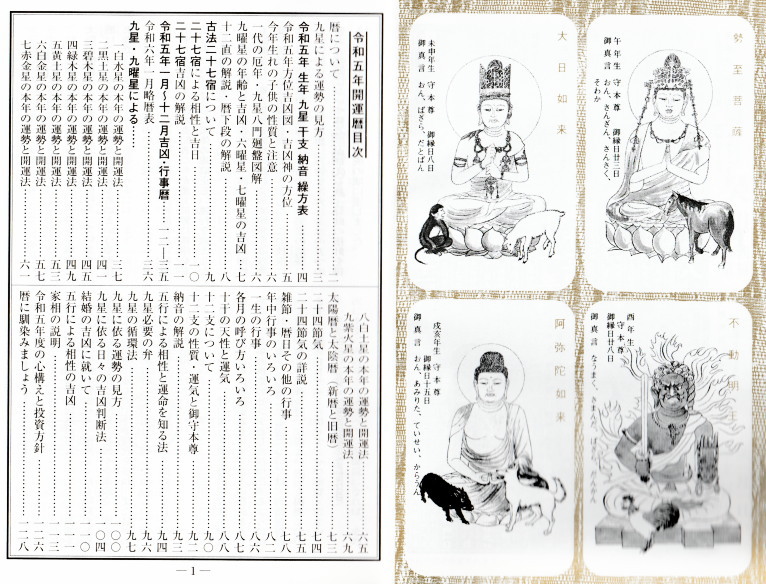 勢至菩薩
午年生 守本尊 御縁日廿三日
御真言 おん、さんざん、さんさく、
そわか
大日如来
未申年生 守本尊 御縁日八日
御真言 おん、ばざら、だとばん
不動明王
酉年生
守本尊
御縁日廿八日
御真言 なうまく、さまん
阿弥陀如来
戌亥年生 守本尊
御縁日十五日
御真言 おん、あみりた、ていせい、からうん
令和五年開運暦目次
暦について…………二
九星による運勢の見方…………三
令和五年 生年 九星 干支 納音 繰方表…………四
令和五年方位吉凶図・吉凶神の方位…………五
今年生れの子供の性質と注意…………六
一代の厄年・九星八門廻盤図解…………六
九曜星の年齢と吉凶・六曜星・七曜星の吉凶…七
十二直の解説・暦下段の解説…………八
古法二十七宿について…………九
二十七宿による相性と吉日…………一〇
二十七宿吉凶の解説…………一一
令和五年一月〜十二月吉凶・行事暦……一二―三五
令和六年一月略暦表…………三六
九星・九曜星による……
一白水星の本年の運勢と開運法…………三七
二黒土星の本年の運勢と開運法…………四一
三碧木星の本年の運勢と開運法…………四五
四緑木星の本年の運勢と開運法…………四九
五黄土星の本年の運勢と開運法…………五三
六白金星の本年の運勢と開運法…………五七
七赤金星の本年の運勢と開運法…………六一
八白土星の本年の運勢と開運法…………六五
九紫火星の本年の運勢と開運法…………六九
太陽暦と太陰暦(新暦と旧暦)…………七三
二十四節気…………七四
二十四節気の詳説…………七五
雑節・暦日その他の行事…………七八
年中行事のいろいろ…………八二
一生の行事…………八六
各月の呼び方いろいろ…………八七
十干の天性と運気…………八八
十二支について…………九〇
十二支の性質・運気と御守本尊…………九二
納音の解説…………九三
五行による相性と運命を知る法…………九四
九星必要の弁…………九六
九星の循環法…………九七
九星に依る運勢の見方…………一〇〇
九星に依る日々の吉凶判断法…………一〇四
結婚の吉凶に就いて…………一一〇
五行による相性の吉凶…………一一一
家相の説明…………一二三
令和五年度の心構えと投資方針…………一二六
暦に馴染みましょう…………一二八
―1―